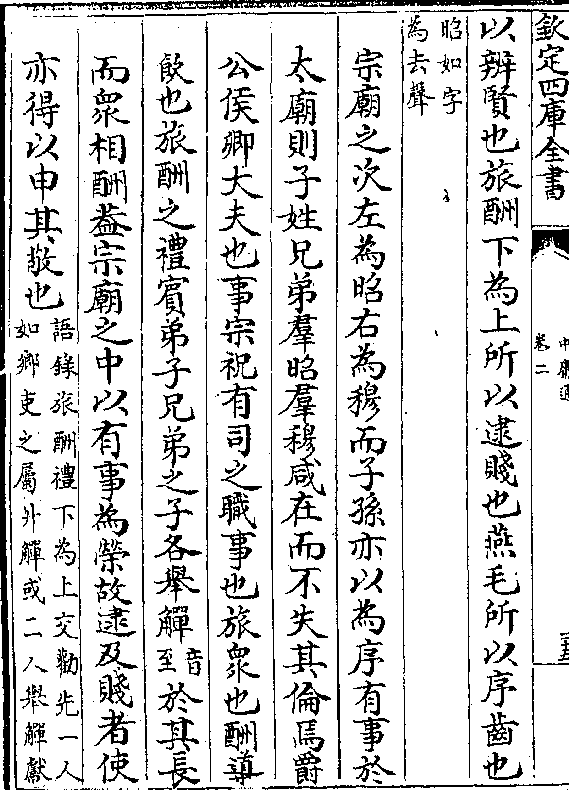 欽定四庫全書
中庸通
卷二
以辨賢也旅酬下為上所以逮賤也燕毛所以序齒也
昭如字
為去聲
宗廟之次左為昭右為穆而子孫亦以為序有事於
太廟則子姓兄弟羣昭羣穆咸在而不失其倫焉爵
公侯卿大夫也事宗祝有司之職事也旅衆也酬導
飲也旅酬之禮賓弟子兄弟之子各舉觶音至於其長
而衆相酬葢宗廟之中以有事為榮故逮及賤者使
亦得以申其敬也語錄旅酬禮下為上交勸先一人
如鄉吏之屬升觶或二人舉觶獻